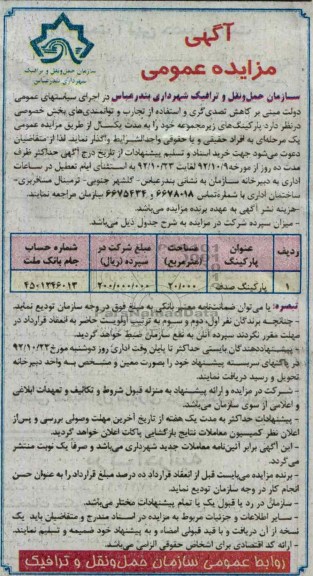 آگهی
مزایده عمومی
سازمان حمل‌ونقل و ترافیک
شهرداری بندرعباس
سازمان حمل‌ونقل و ترافیک شهرداری بندرعباس در اجرای سیاستهای عمومی
دولت مبنی بر کاهش تصدی‌گری و استفاده از تجارب و توانمندی‌های بخش خصوصی
درنظر دارد پارکینگ‌های زیرمجموعه خود را به مدت یکسال از طریق مزایده عمومی
یک مرحله‌ای به افراد حقیقی و یا حقوقی واجدالشرایط واگذار نماید. لذا از متقاضیان
دعوت می‌شود جهت خرید اسناد و تسلیم پیشنهادات از تاریخ درج آگهی حداکثر ظرف
مدت ده روز از مورخه ۹۲/۱۰/۰۹ لغایت ۹۲/۱۰/۲۳ به استثنای ایام تعطیل در ساعات
اداری به دبیرخانه سازمان به نشانی بندرعباس - گلشهر جنوبی - ترمینال مسافربری-
ساختمان اداری یا شماره‌تماس ۶۶۷۸۰۱۸ و ۶۶۷۵۴۳۴ سازمان مراجعه نمایند.
-هزینه نشر آگهی به عهده برنده مزایده می‌باشد.
- میزان سپرده شرکت در مزایده به شرح جدول ذیل می‌باشد.
ردیف عنوان پارکینگ مساحت (مترمربع) مبلغ شرکت در سپرده (ریال) شماره حساب جام بانک ملت
۱ پارکینگ صدف ۲۰/۰۰۰ ۲۰۰/۰۰۰/۰۰۰ ۴۵۰۱۲۴۶۰۱۳
تبصره: یا می‌توان ضمانت‌نامه معتبر بانکی به مبلغ فوق در وجه سازمان تودیع نماید.
- چنانچه برندگان نفر اول، دوم و سوم به ترتیب اولویت حاضر به انعقاد قرارداد در
مهلت مقرر نگردند سپرده آنان به نفع سازمان ضبط خواهد گردید.
- پیشنهاددهندگان بایستی حداکثر تا پایان وقت اداری روز دوشنبه مورخ ۹۲/۱۰/۲۳
در پاکتهای سربسته پیشنهاد خود را بصورت معین و مشخص به واحد دبیرخانه
تحویل و رسید دریافت نمایند.
- شرکت در مزایده و ارائه پیشنهاد به منزله قبول شروط و تکالیف و تعهدات ابلاغی
و اعلامی از سوی سازمان می‌باشد.
- پیشنهادات حداکثر به مدت یک هفته از تاریخ آخرین مهلت وصولی بررسی و پس از
اعلان نظر کمیسیون معاملات نتایج بازگشایی پاکات اعلان خواهد گردید.
- این آگهی برابر آئین‌نامه معاملات جدید شهرداری می‌باشد و صرفاً یک نوبت منتشر
می‌گردد.
- برنده مزایده می‌بایست قبل از انعقاد قرارداد ده درصد مبلغ قرارداد را به عنوان حسن
انجام کار در وجه سازمان تودیع نماید.
- سازمان در رد یا قبول یک یا تمام پیشنهادات مختار می‌باشد.
- سایر اطلاعات و جزئیات مربوط به مزایده در اسناد مندرج و متقاضیان باید یک
نسخه از آن دریافت و با قید قبولی امضاء و به پیشنهاد خود ضمیمه و تسلیم نمایند.
- ارائه کد اقتصادی برای اشخاص حقوقی الزامی می‌باشد.
روابط عمومی سازمان حمل‌ونقل و ترافیک